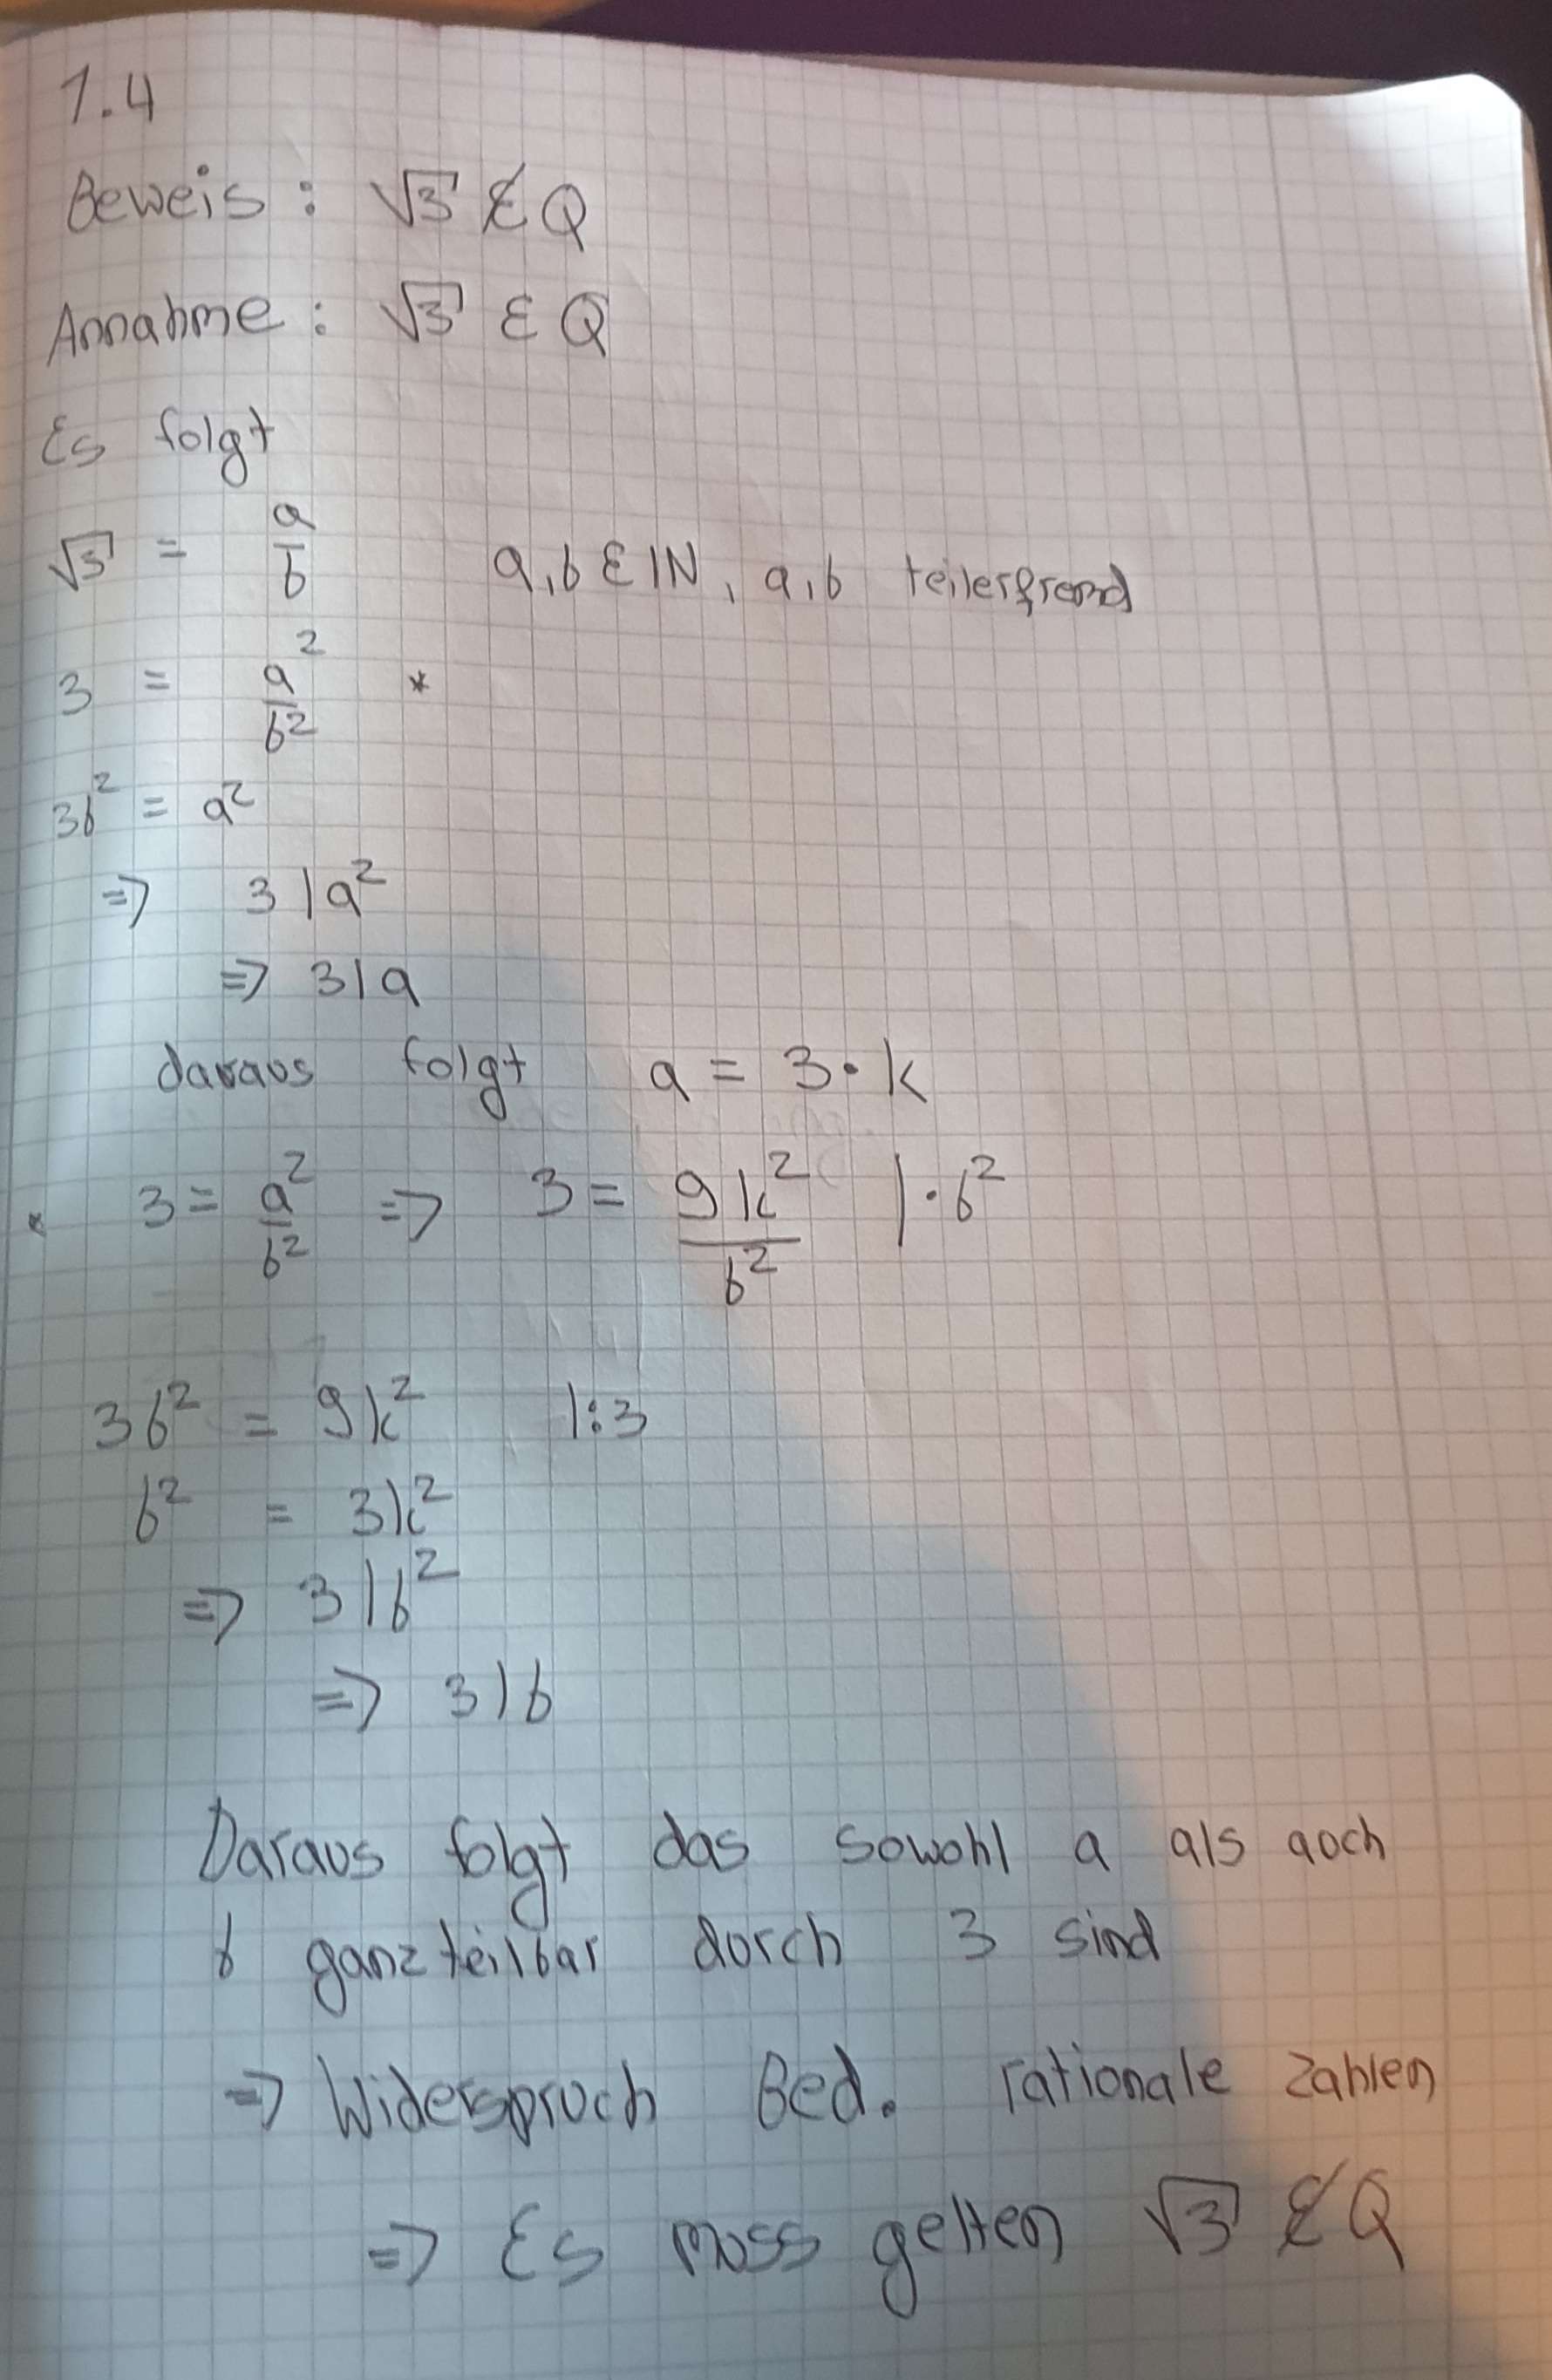 1.4
Beweis: √3 ∉ Q
Annahme: √3 ∈ Q
Es folgt
√3 = a/b a,b ∈ ℕ, a,b teilerfremd
3 = a²/b² *
3b² = a²
=> 3|a²
=> 3|a
daraus folgt a = 3·k
* 3 = a²/b² => 3 = 9k²/b² |·b²
3b² = 9k² |:3
b² = 3k²
=> 3|b²
=> 3|b
Daraus folgt das sowohl a als auch
b ganzteilbar durch 3 sind
=> Widerspruch Bed. rationale Zahlen
=> Es muss gelten √3 ∉ Q